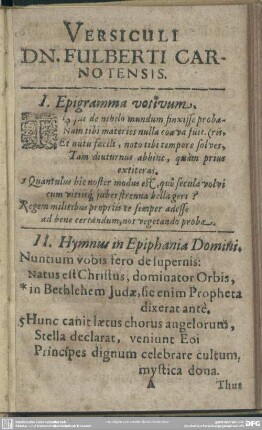 VERSICULI
DN. FULBERTI CAR-
NOTENSIS.
I. Epigramma votivum.
de nihilo mundum finxisse proba-
Nam tibi materies nulla fuit. (ris,
Et nutu facili, noto tibi tempore solves,
Tam diuturnus abhinc, quàm prius
extiterat.
Quantulus hic noster modus est, quò secula volvi
cum vitiisq; jubes strenua bella geri?
Regem militibus propriis te semper adesse
ad bene certandum, vegetando proba.
II. Hymnus in Epiphania Domini.
Nuntium vobis fero de supernis:
Natus est Christus, dominator Orbis,
* in Bethlehem Judæ, sic enim Propheta
dixerat antè.
5 Hunc canit lætus chorus angelorum,
Stella declarat, veniunt Eoi
Principes dignum celebrare cultum,
mystica dona.
A
Thus